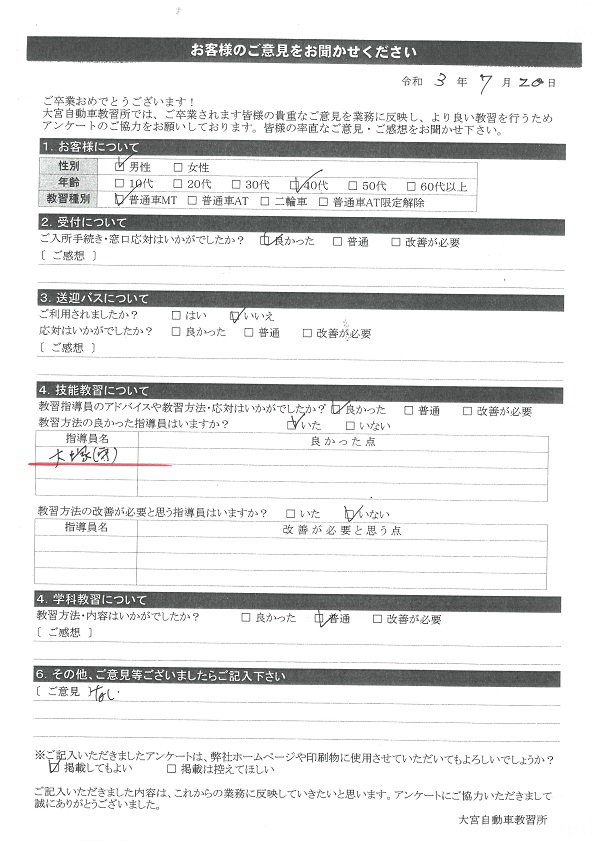 お客様のご意見をお聞かせください
令和 3 年 7 月 20 日
ご卒業おめでとうございます！
大宮自動車教習所では、ご卒業されます皆様の貴重なご意見を業務に反映し、より良い教習を行うため
アンケートのご協力をお願いしております。皆様の率直なご意見・ご感想をお聞かせ下さい。
1. お客様について
性別 ☑男性 □女性
年齢 □10代 □20代 □30代 ☑40代 □50代 □60代以上
教習種別 ☑普通車MT □普通車AT □二輪車 □普通車AT限定解除
2. 受付について
ご入所手続き・窓口応対はいかがでしたか？ ☑良かった □普通 □改善が必要
〔 ご感想 〕
3. 送迎バスについて
ご利用されましたか？ □はい ☑いいえ
応対はいかがでしたか？ □良かった □普通 □改善が必要
〔 ご感想 〕
4. 技能教習について
教習指導員のアドバイスや教習方法・応対はいかがでしたか？ ☑良かった □普通 □改善が必要
教習方法の良かった指導員はいますか？ ☑いた □いない
指導員名 良かった点
大塚
教習方法の改善が必要と思う指導員はいますか？ □いた ☑いない
指導員名 改善が必要と思う点
4. 学科教習について
教習方法・内容はいかがでしたか？ □良かった ☑普通 □改善が必要
〔 ご感想 〕
6. その他、ご意見等ございましたらご記入下さい
〔 ご意見 〕 なし
※ご記入いただきましたアンケートは、弊社ホームページや印刷物に使用させていただいてもよろしいでしょうか？
☑掲載してもよい □掲載は控えてほしい
ご記入いただきました内容は、これからの業務に反映していきたいと思います。アンケートにご協力いただきまして
誠にありがとうございました。
大宮自動車教習所